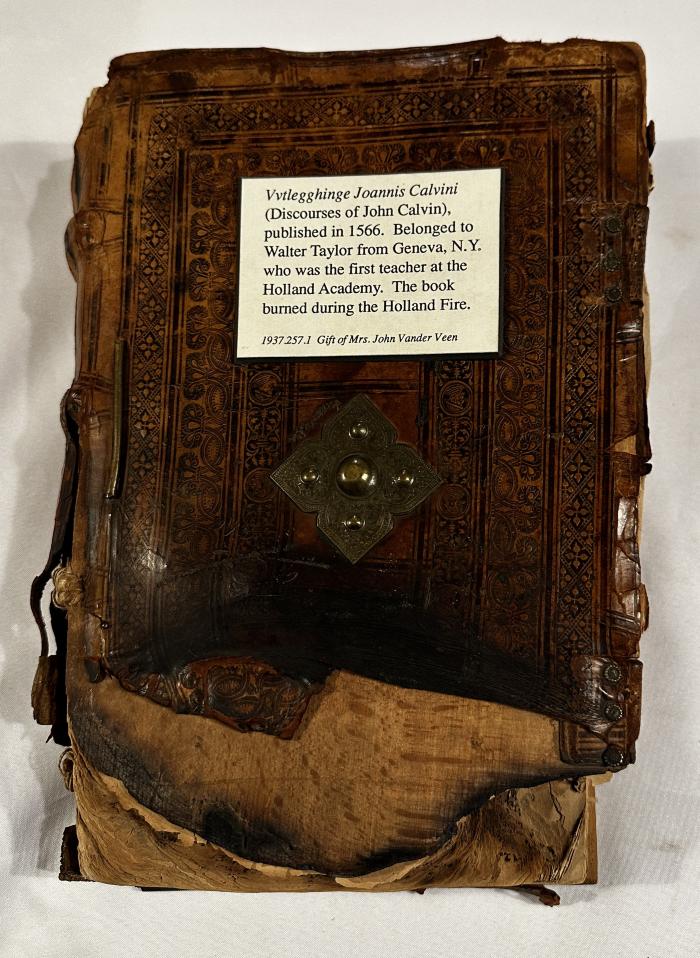 Vvtlegghinge Joannis Calvini
(Discourses of John Calvin),
published in 1566. Belonged to
Walter Taylor from Geneva, N.Y.
who was the first teacher at the
Holland Academy. The book
burned during the Holland Fire.
1937.257.1 Gift of Mrs. John Vander Veen